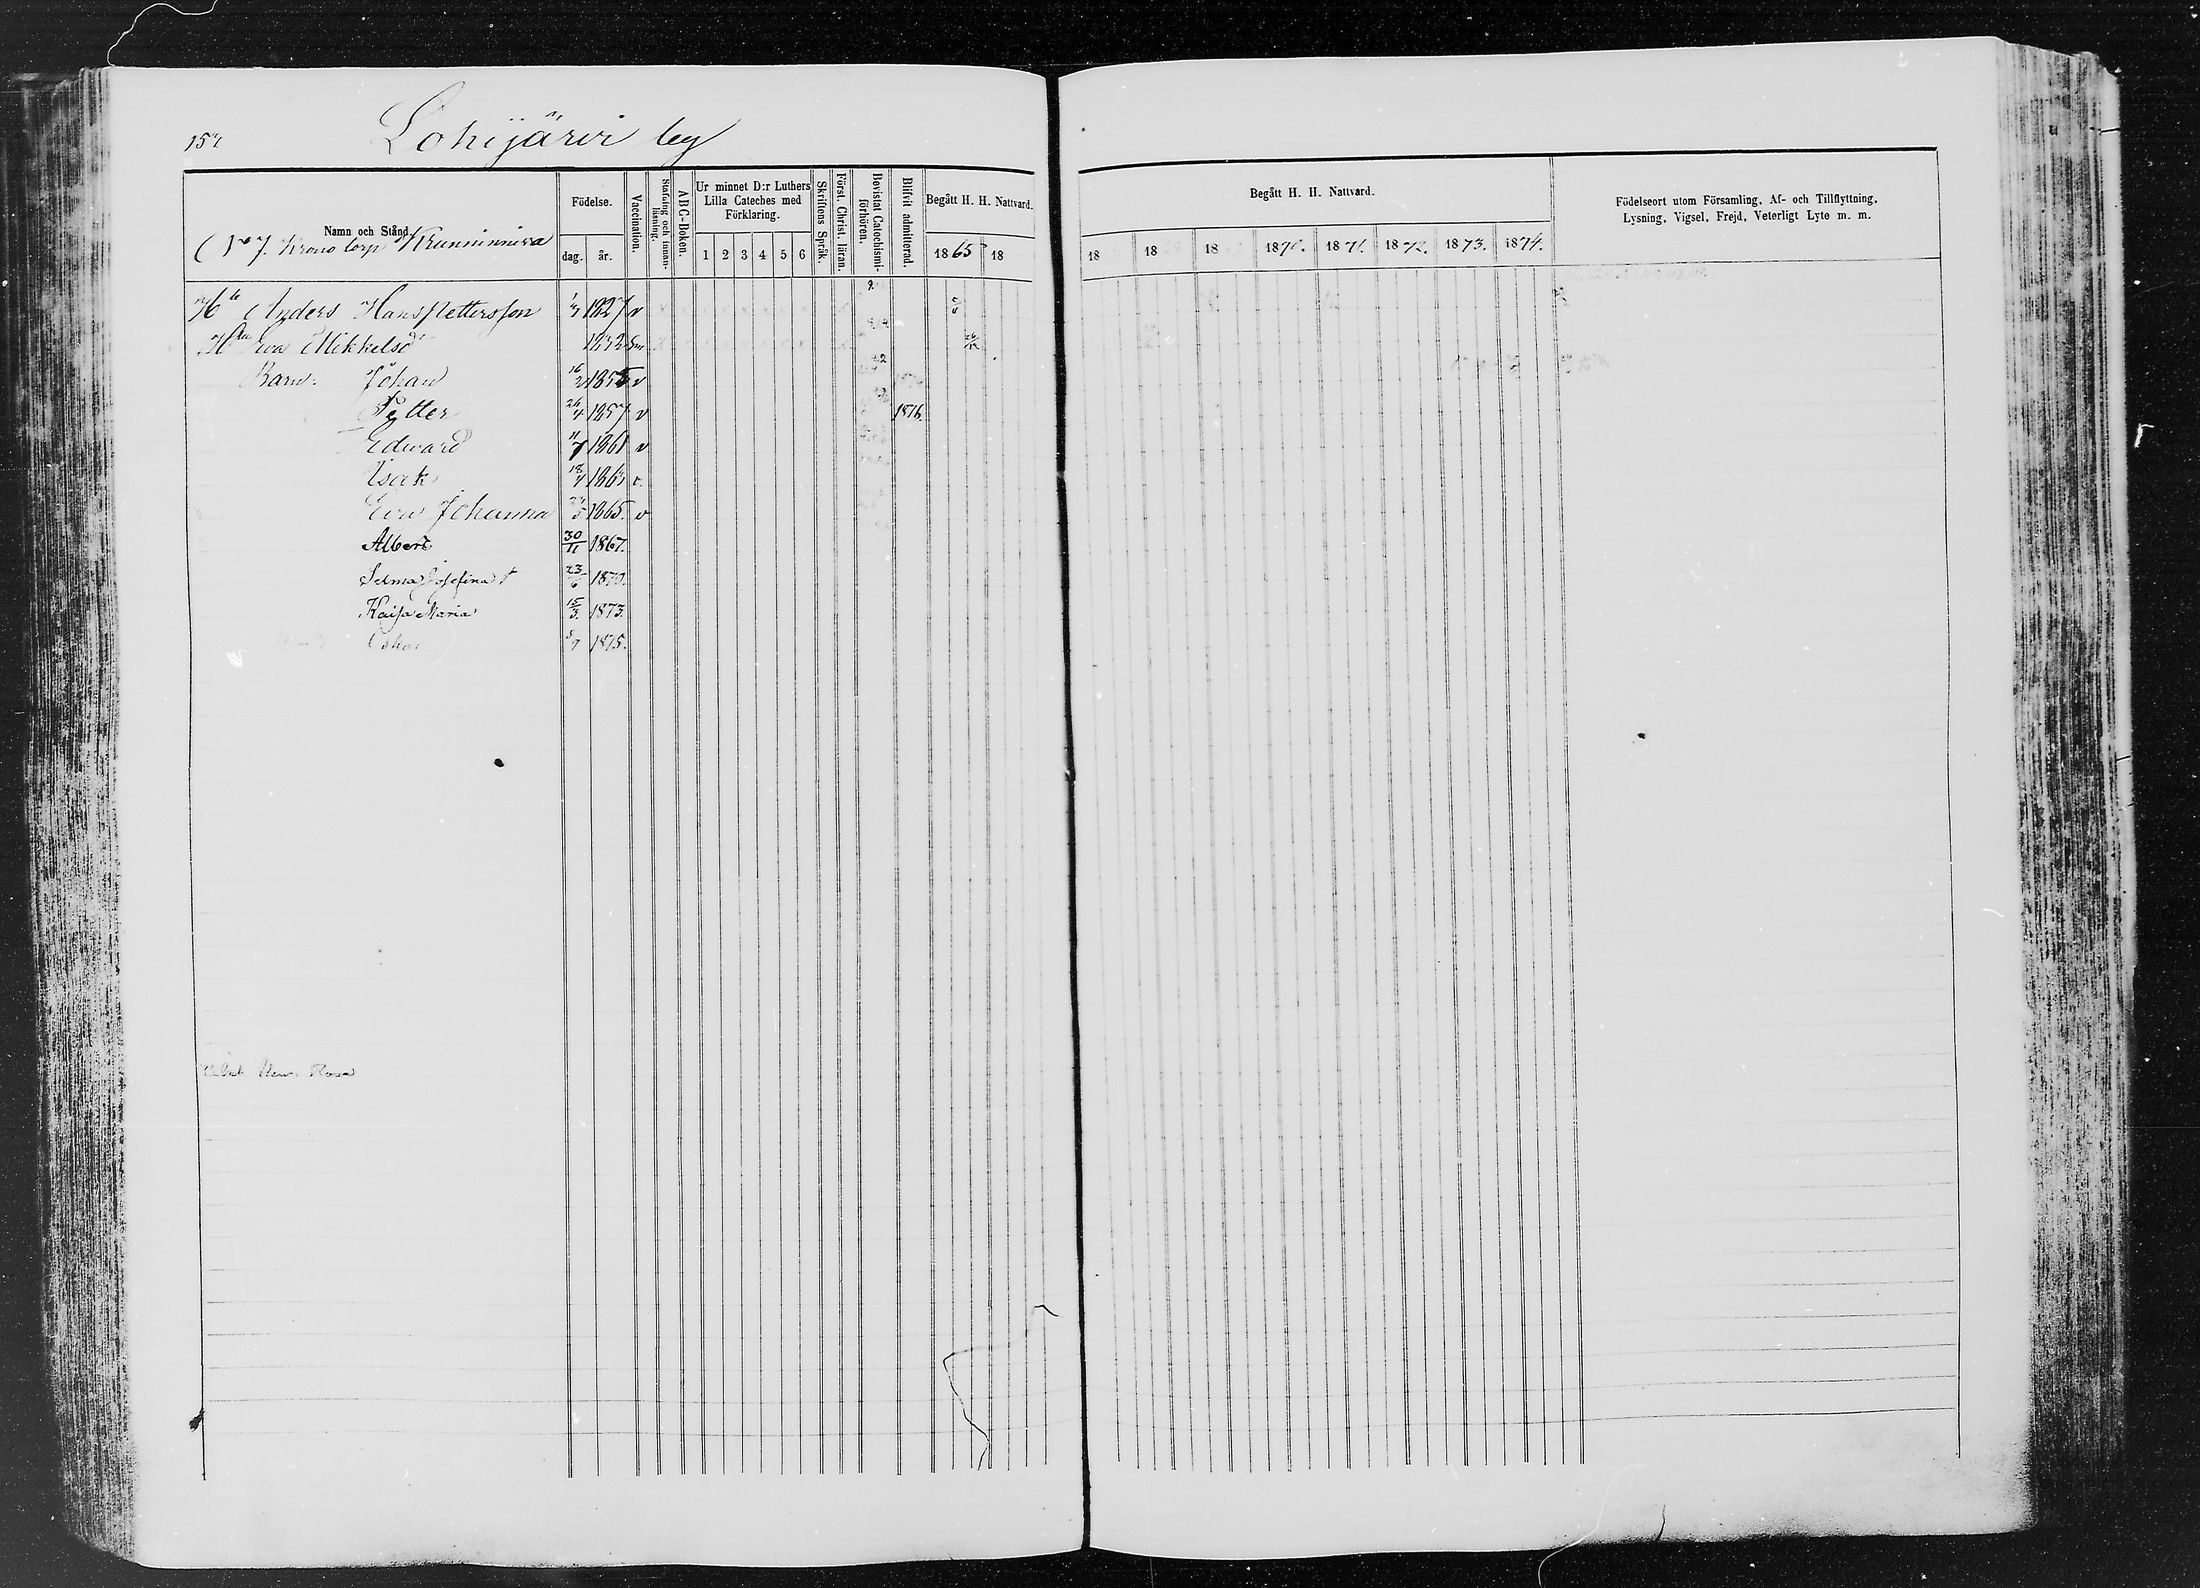 Lohijärvi by
Namn och Stånd.
Födelse.
dag. år.
Vaccination.
Stafning och innanläsning.
A B C-Boken.
Ur minnet D:r Luthers Lilla Cateches med Förklaring.
1 2 3 4 5 6
Skriftens Språk.
Först. Christ. läran.
Bevistat Catechismiförhören.
Blifvit admitterad.
Begått H. H. Nattvard.
1865 18
Begått H. H. Nattvard.
18 18 18 1870. 1871. 1872. 1873. 1874.
Födelseort utom Församling, Af- och Tillflyttning,
Lysning, Vigsel, Frejd, Veterligt Lyte m. m.
No 7. Krono torp Kunninniva
Anders Hans Pettersson 1827 v
Eva Mikkelsd 1832
Barn: Johan 16/2 1855 v
Petter 26/4 1857 v 1876.
Edward 11/7 1861 v
Isak 18/4 1863 v.
Eva Johanna 1865. v
Albert 30/11 1867.
Selma Josefina † 23/6 1870.
Kaisa Maria 15/3. 1873.
Oskar 5/7 1875.